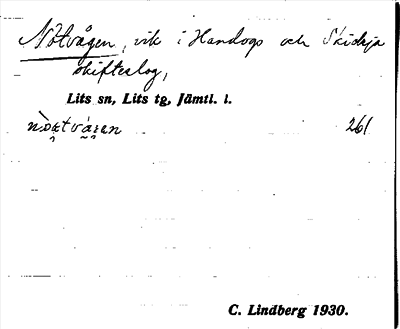 Nötvågen, vik i Handogs och Skidsja
skifteslag,
Lits sn, Lits tg, Jämtl. l.
261
C. Lindberg 1930.